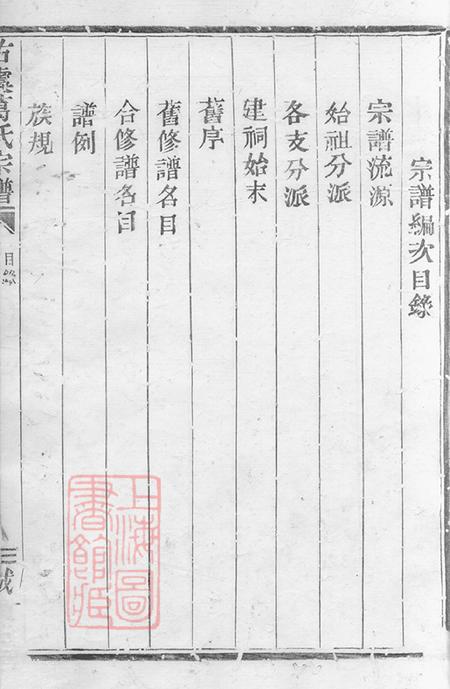 宗譜編次目錄
宗譜流源
始祖分派
各支分派
建祠始末
舊序
舊修譜名目
合修譜名目
譜例
族規
古虞葛氏宗譜
目錄
上海圖書館藏